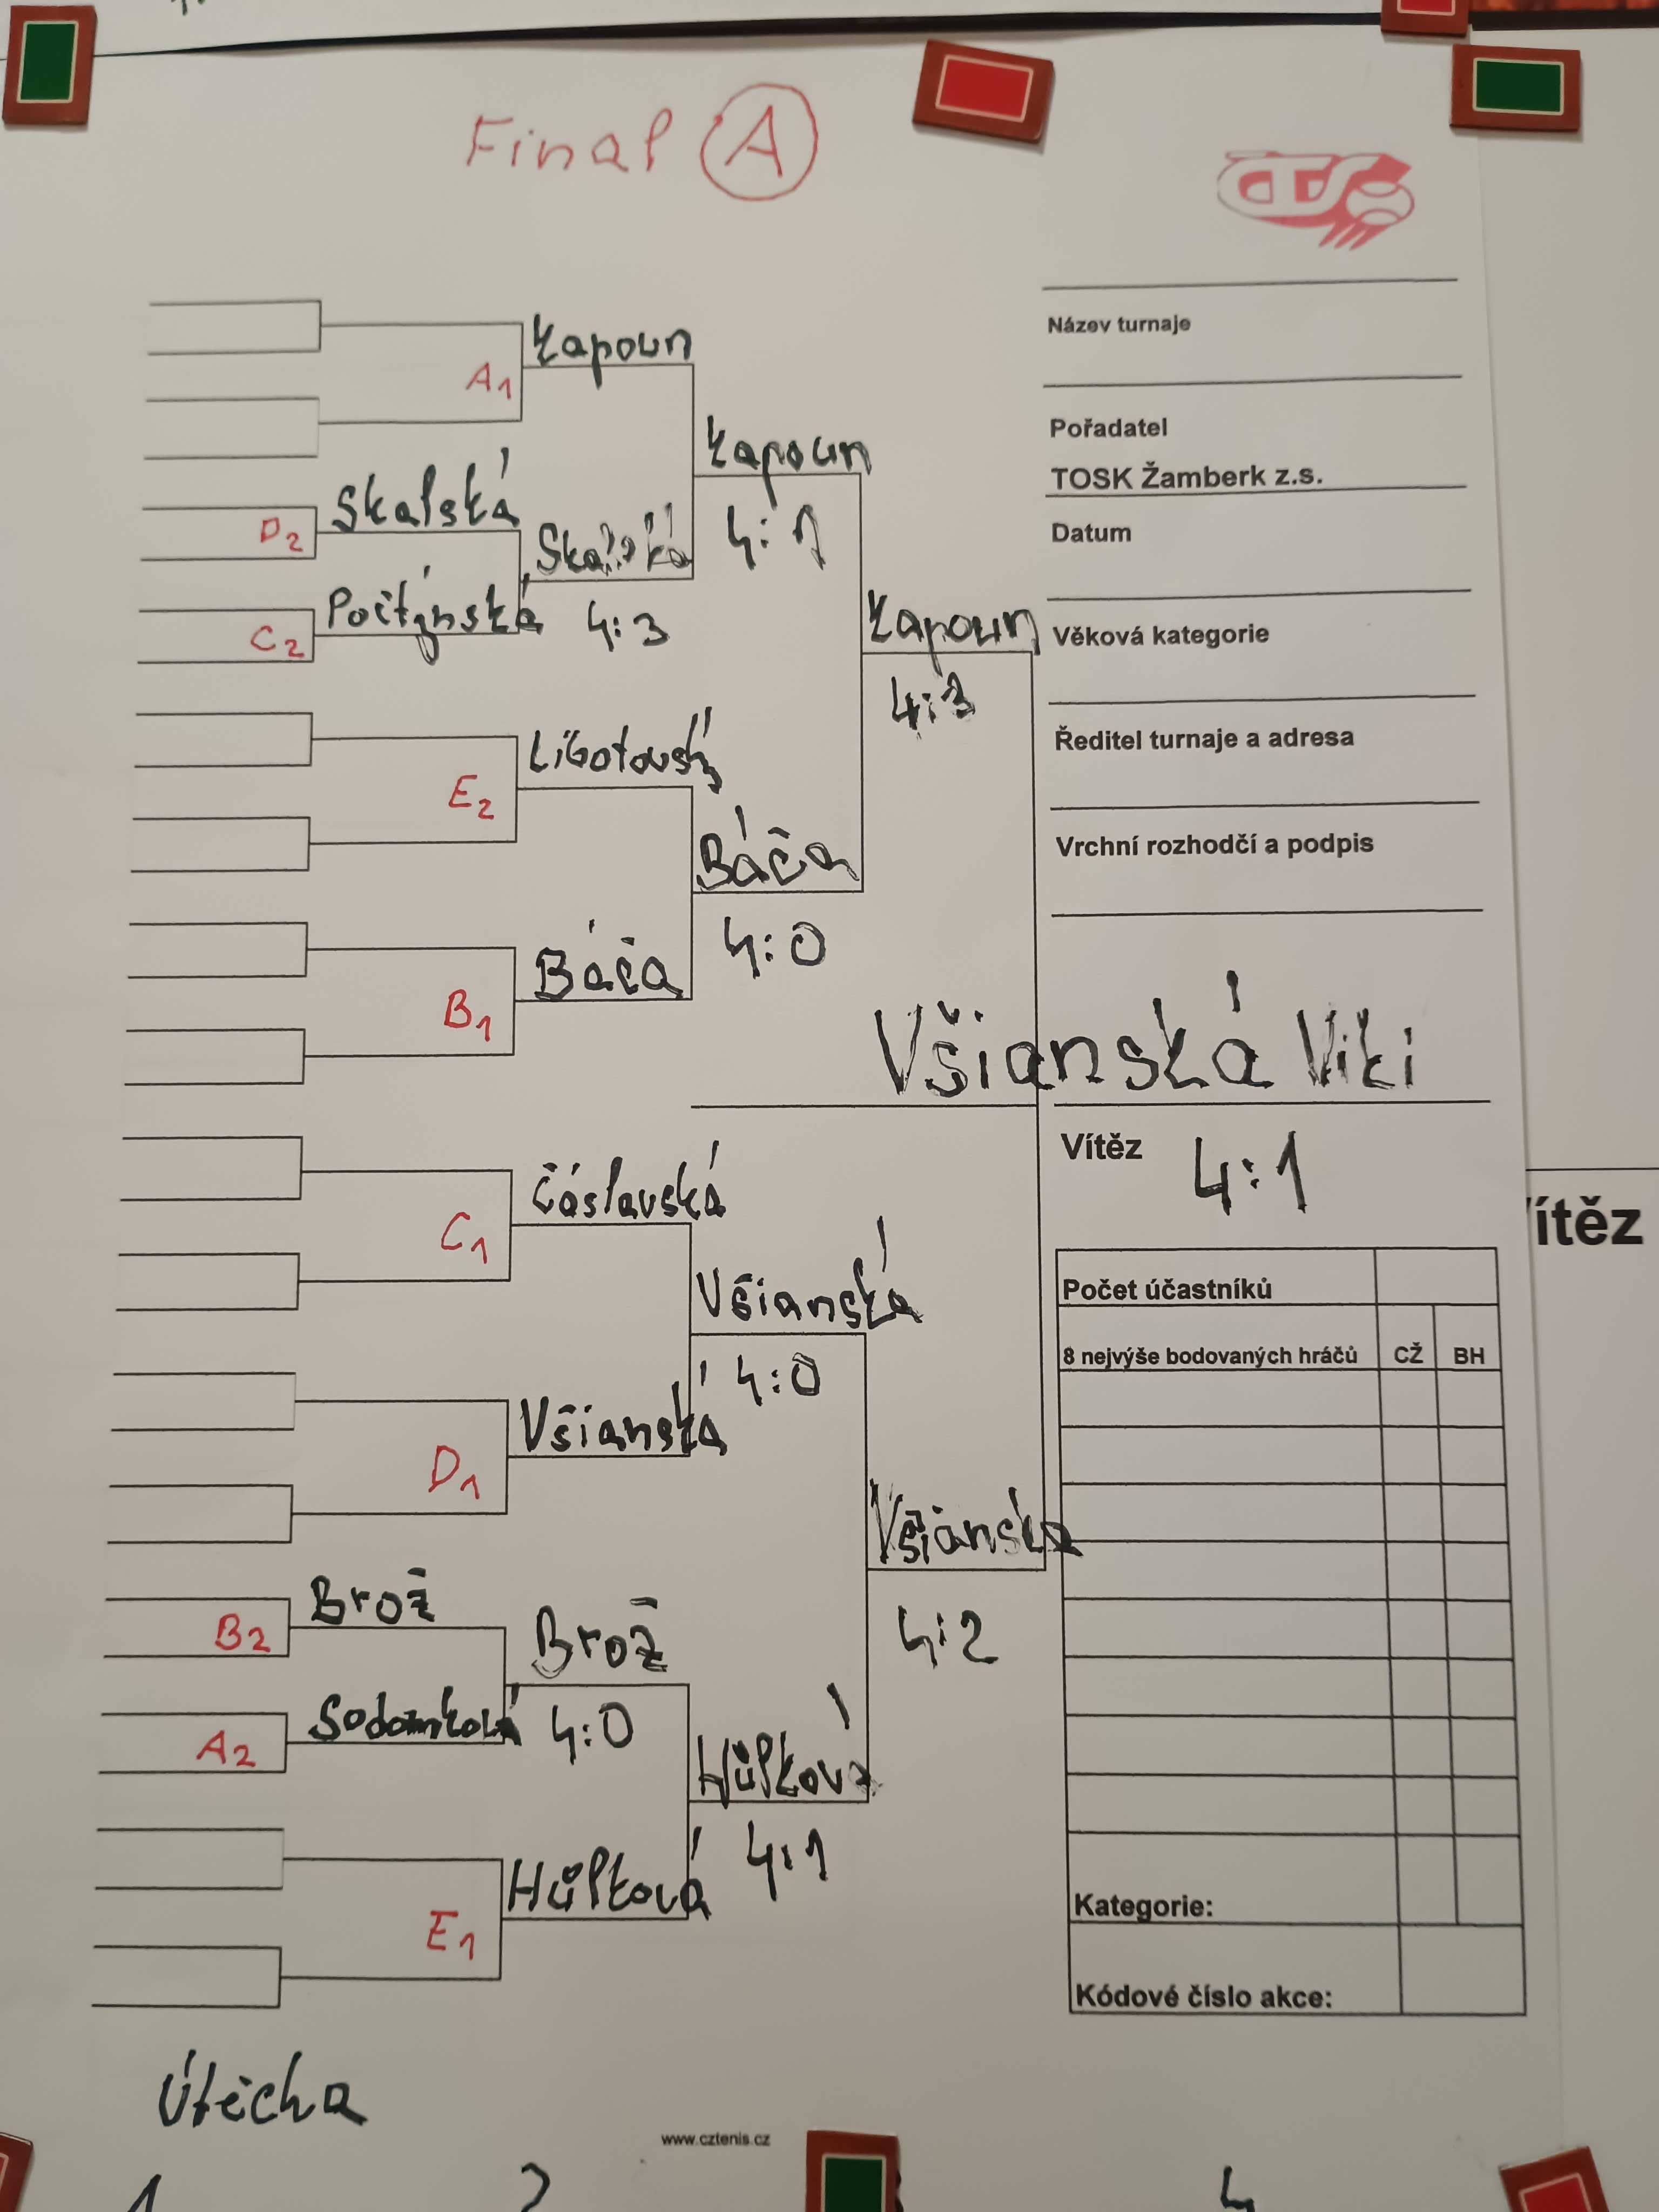 Final A
ČTS
Název turnaje
Kapoun
A1
Pořadatel
Kapoun
TOSK Žamberk z.s.
Skalská
D2
4:1
Datum
Skalská
Počtýnská
C2
4:3
Kapoun
Věková kategorie
4:3
Libotovský
Ředitel turnaje a adresa
E2
Báča
Vrchní rozhodčí a podpis
4:0
Báča
B1
Všianská Viki
Vítěz
4:1
Čáslavská
C1
ítěz
Všianská
Počet účastníků
4:0
8 nejvýše bodovaných hráčů CŽ BH
Všianská
D1
Všianská
Brož
B2
4:2
Brož
Sodomková
A2
4:0
Hůlková
4:1
Hůlková
E1
Kategorie:
Kódové číslo akce:
Útěcha
www.cztenis.cz